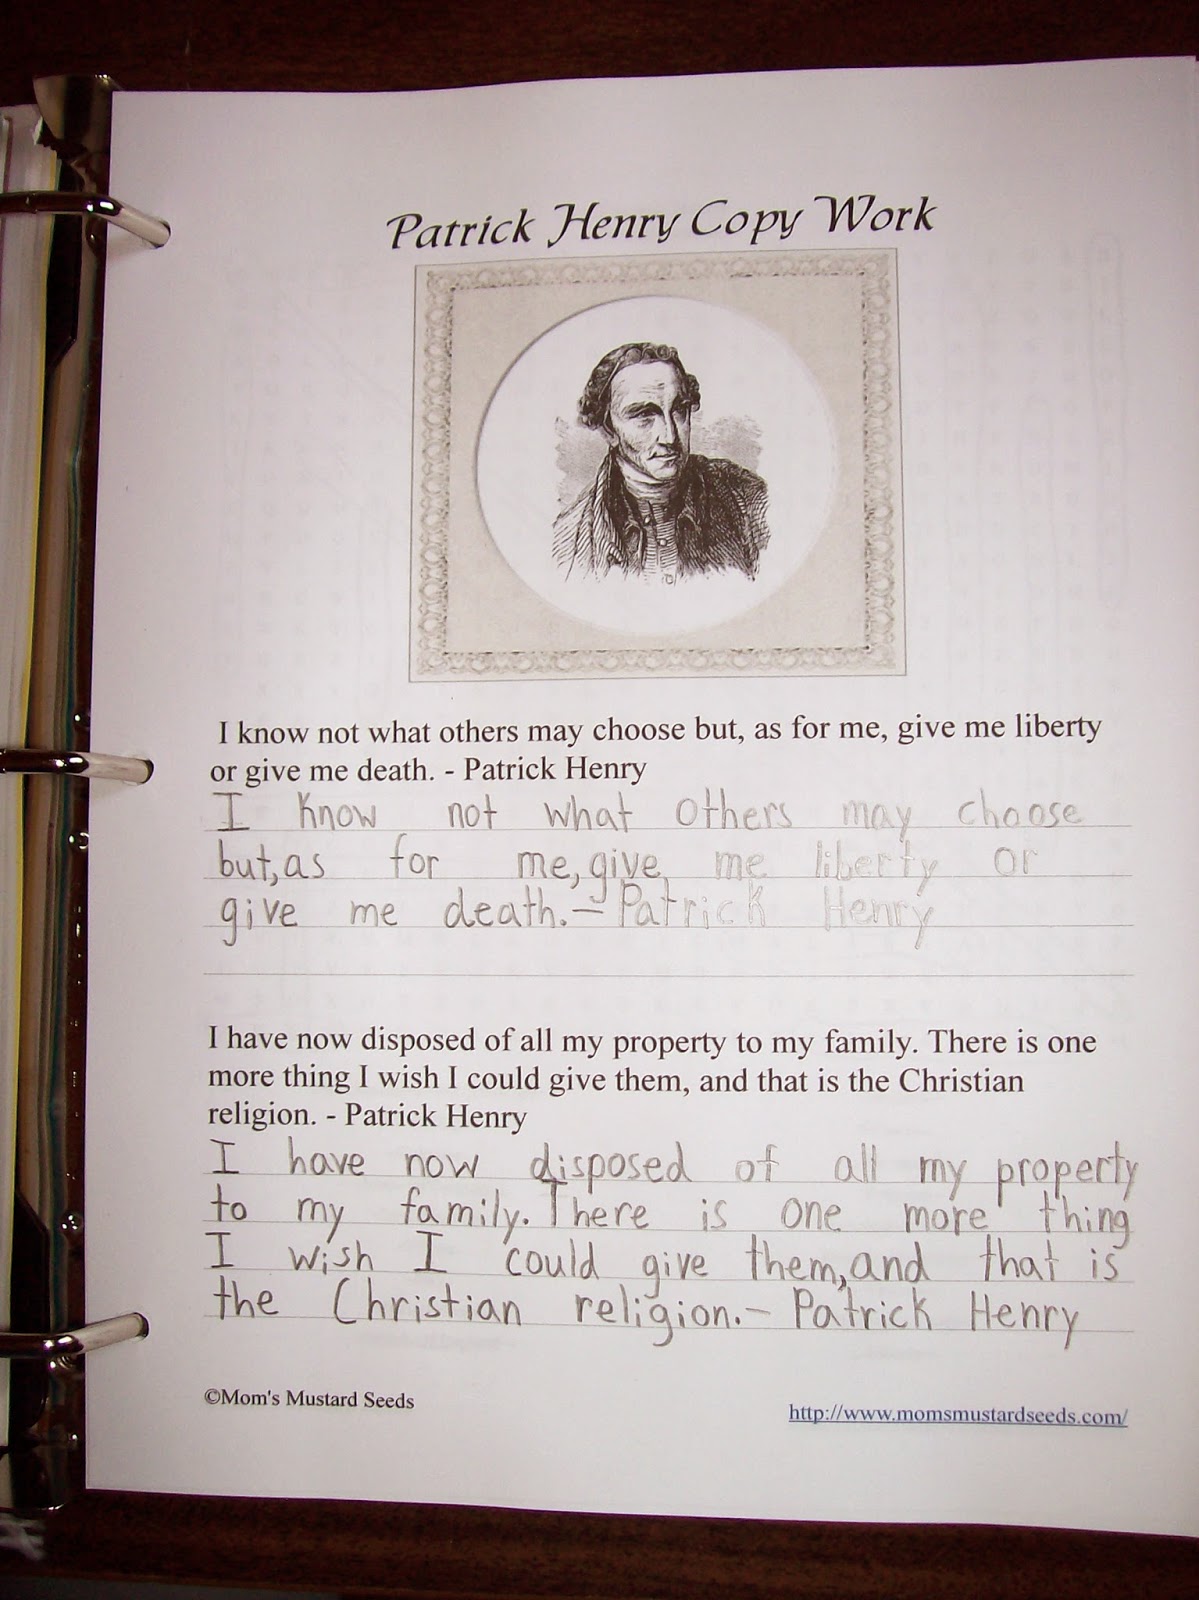 Patrick Henry Copy Work
I know not what others may choose but, as for me, give me liberty
or give me death. - Patrick Henry
I know not what others may choose
but, as for me, give me liberty or
give me death. - Patrick Henry
I have now disposed of all my property to my family. There is one
more thing I wish I could give them, and that is the Christian
religion. - Patrick Henry
I have now disposed of all my property
to my family. There is one more thing
I wish I could give them, and that is
the Christian religion. - Patrick Henry
©Mom's Mustard Seeds
http://www.momsmustardseeds.com/